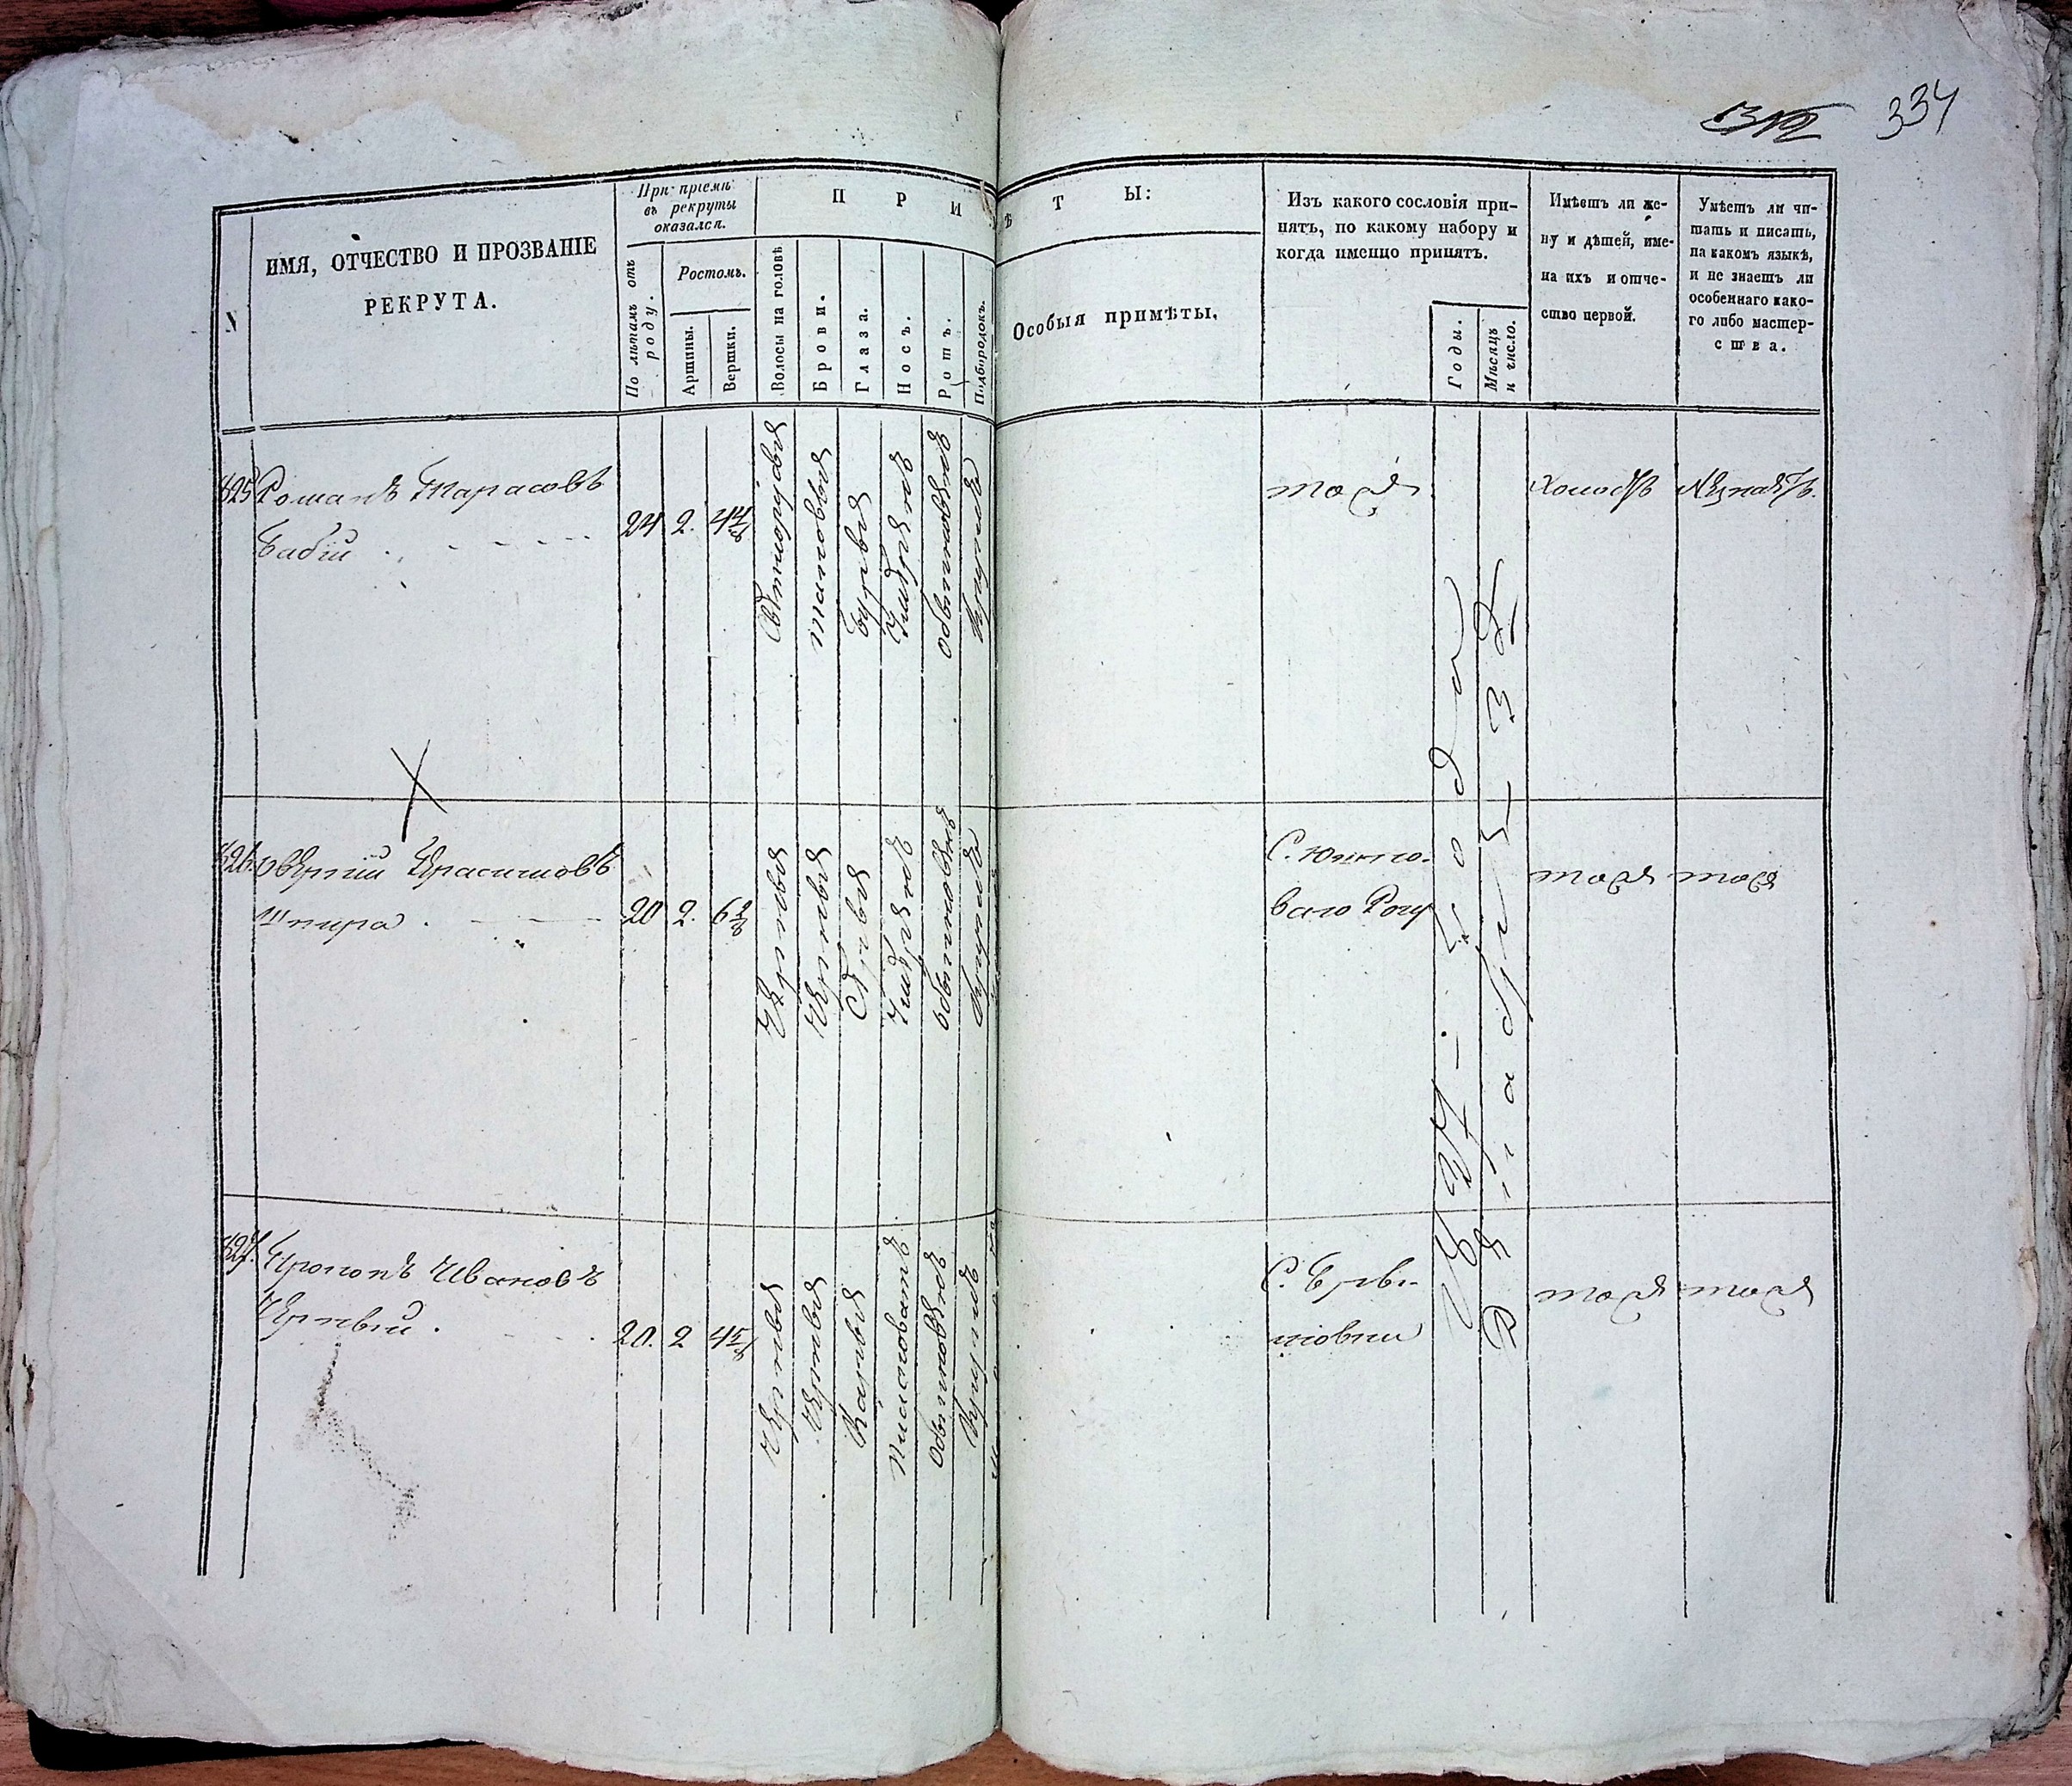 334
ИМЯ, ОТЧЕСТВО И ПРОЗВАНІЕ
РЕКРУТА.
При пріемѣ
въ рекруты
оказался.
По лѣтамъ отъ
роду.
Ростомъ.
Аршины.
Вершки.
П Р И Ѣ Т Ы:
Волосы на головѣ
Брови.
Глаза.
Носъ.
Ротъ.
Подбородокъ.
Особыя примѣты.
Изъ какого сословія при-
нятъ, по какому набору и
когда именно принятъ.
Годы.
Мѣсяцъ
и число.
Имѣетъ ли же-
ну и дѣтей, име-
на ихъ и отче-
ство первой.
Умѣетъ ли чи-
тать и писать,
на какомъ языкѣ,
и не знаетъ ли
особеннаго како-
го либо мастер-
ства.
425 Романъ Тарасовъ
Бабій
24 2. 4 4/8
Свѣтлорусыя
таковыя
Обыкновеный
Круглый
тоже
Холостъ
Незнаетъ.
426. Герасимовъ
Шпура
20 2. 6
Черныя
Черныя
Сѣрыя
Обыкновеный
Круглый
С.
ваго Рогу
тоже
тоже
427. Ивановъ
Черный.
20. 2 4 5/8
Черныя
Черныя
Карыя
Обыкновеный
Круглый
С.
тоже
тоже
года